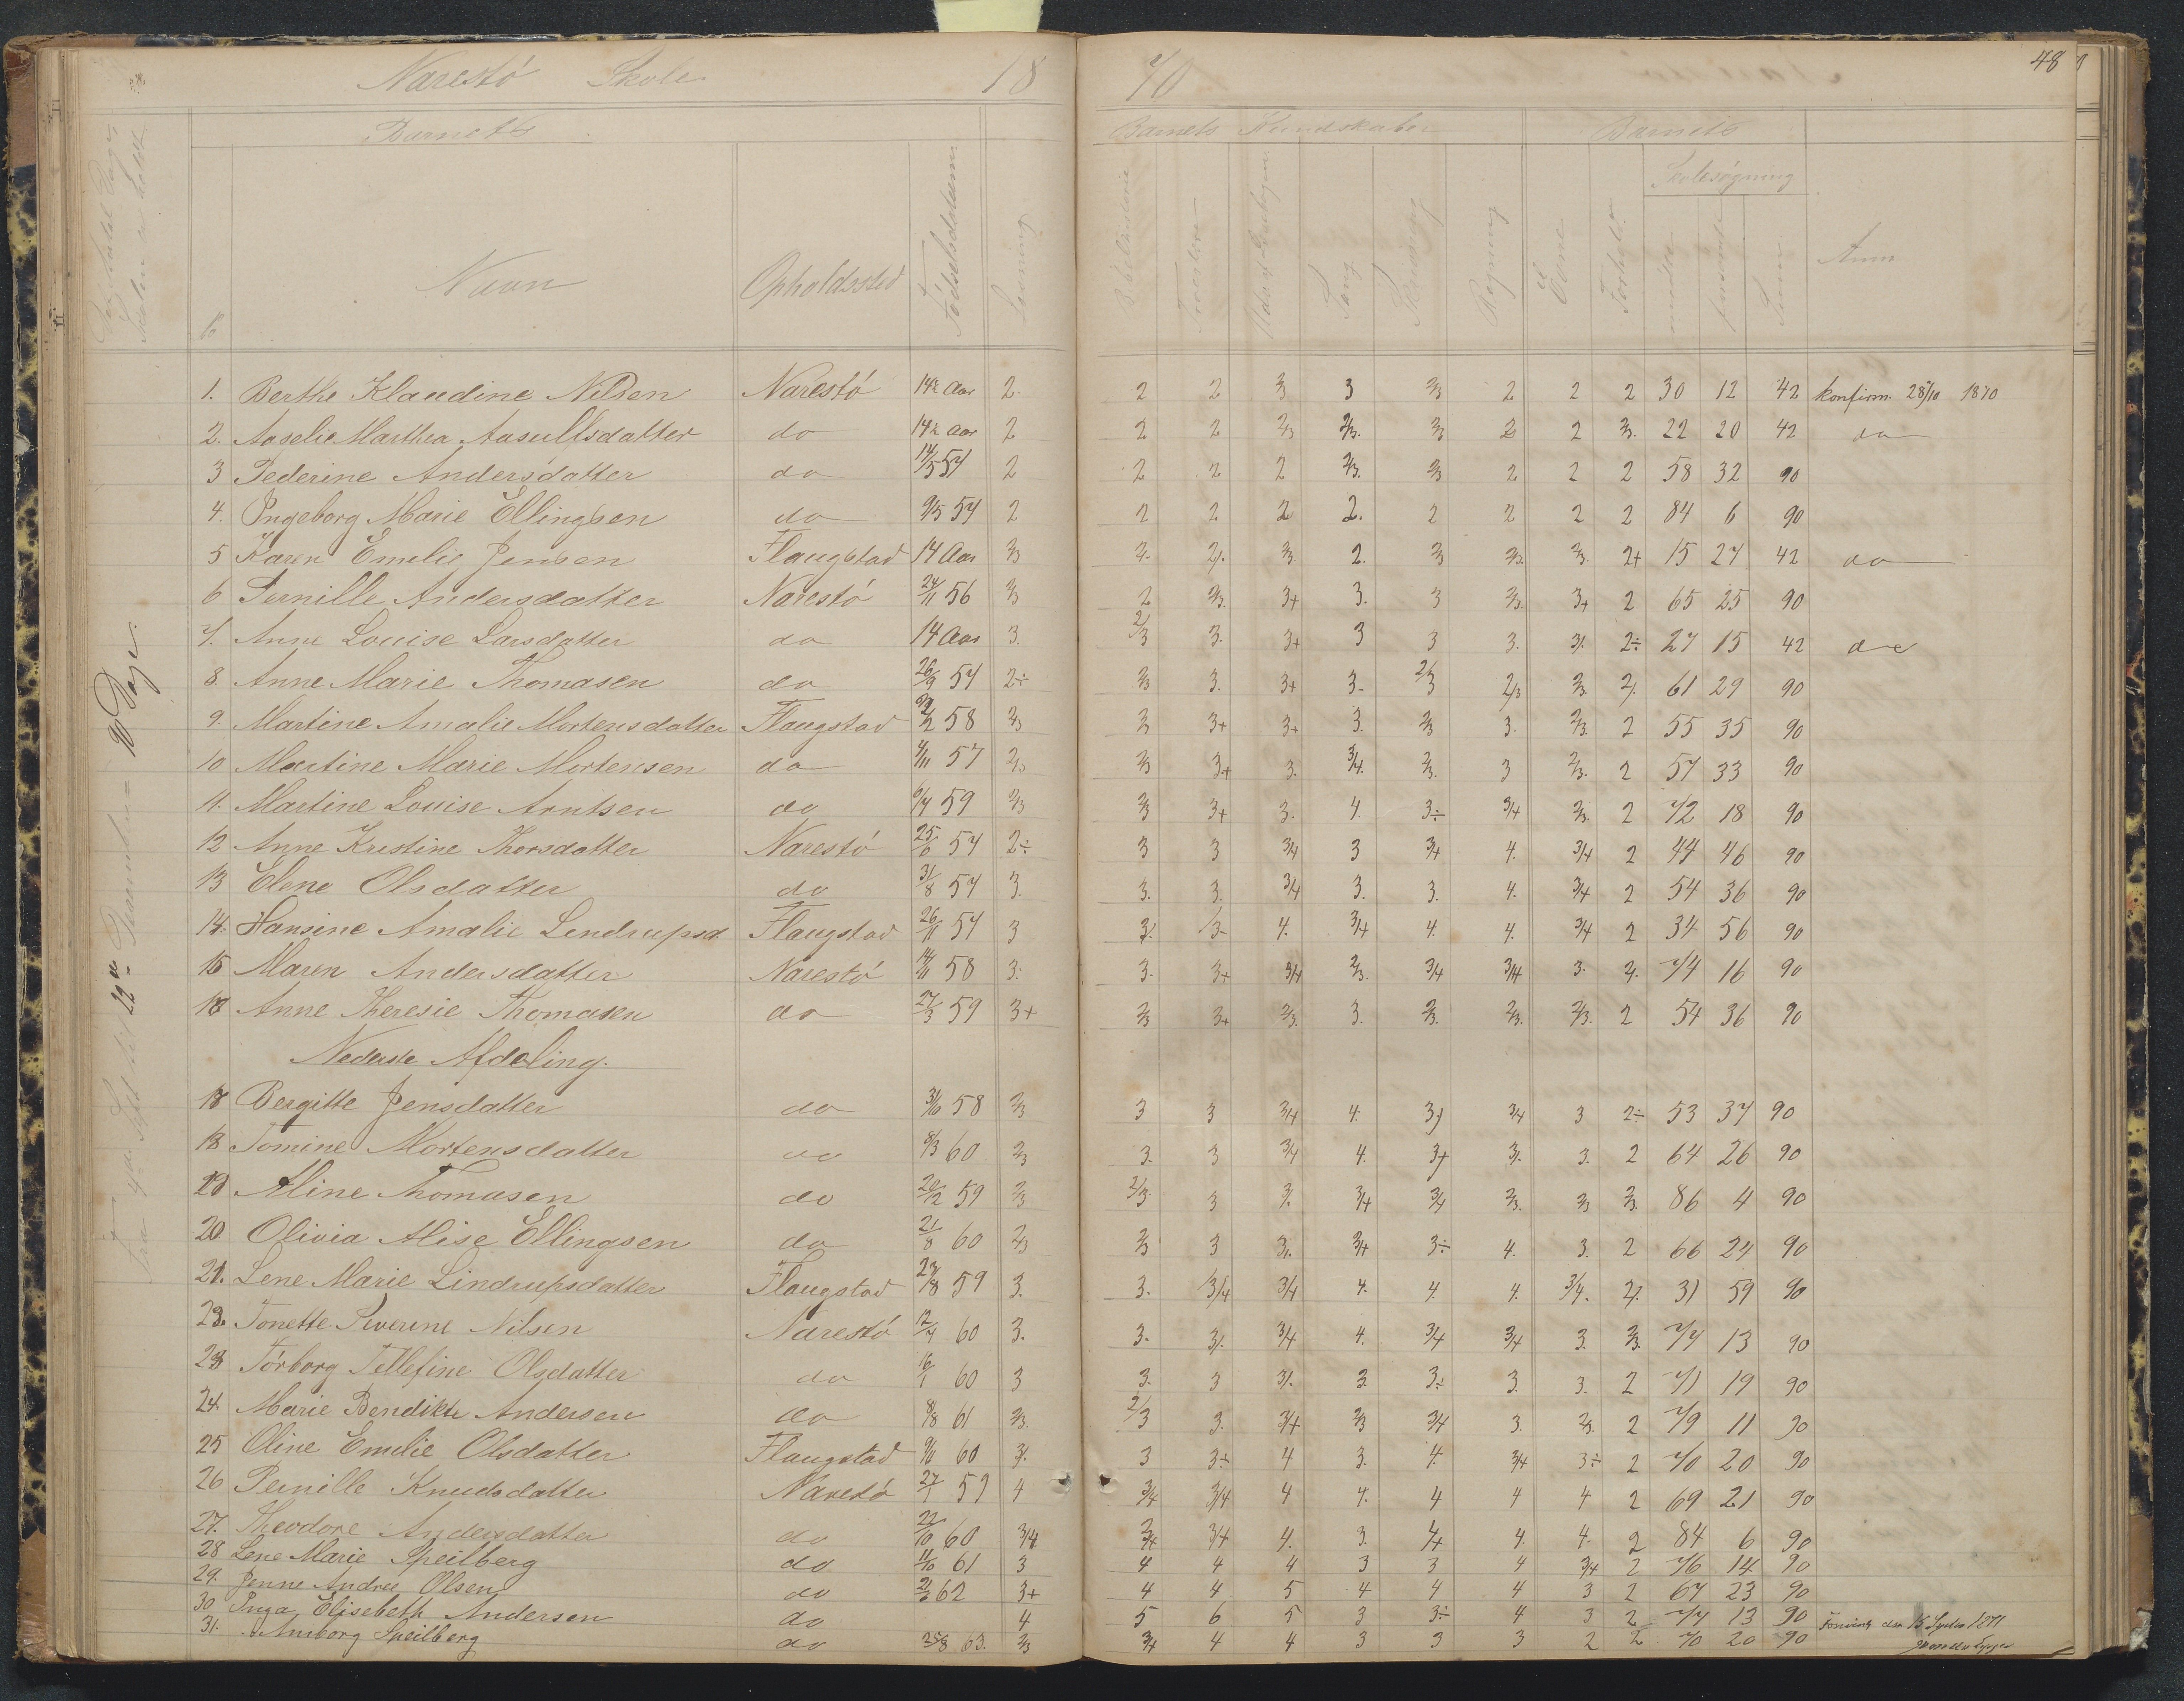 Narestö Skole 18 70 48
Barnets Barnets Kundskaber Barnets
Skolesøgning
Navn Opholdssted Fødselsdatum Læsning Bibelhistorie Troeslære Sang Skrivning Regning Evne Forhold mødte forsømte Sum Anm
1. Berthe Klaudine Nilsen Narestö 14½ Aar 2. 2 2 2/3 3 2/3 2 2 2 30 12 42 konfirm. 28/10 1870
2. Aaselie Marthea Aasulfsdatter do 14½ Aar 2 2 2 2/3 2/3. 2/3 2 2 2/3. 22 20 42 do
3 Pederine Andersdatter do 14/5 57 2 2 2 2 2/3. 2/3 2 2 2 58 32 90
4. Ingeborg Marie Ellingsen do 9/5 57 2 2 2 2 2. 2 2 2 2 84 6 90
5 Karen Emelie Jensen Flaugstad 14 Aar 2/3 2. 2/. 2/3. 2. 2/3 2/3. 2/3. 2+ 15 27 42 do
6 Pernille Andersdatter Narestö 24/11 56 2/3 2 2/3. 3+ 3. 3 2/3. 3+ 2 65 25 90
7. Anne Louise Larsdatter do 14 Aar 3. 2/3 3. 3+ 3 3 3. 3/. 2÷ 27 15 42 do
8. Anne Marie Thomasen do 26/9 57 2÷ 2/3 3. 3+ 3- 2/3 2/3 2/3. 2/. 61 29 90
9. Martine Amalie Mortensdatter Flaugstad 9/2 58 2/3 2/3 3+ 3+ 3. 2/3 3. 2/3. 2 55 35 90
10 Martine Marie Mortensen do 4/11 57 2/3 2/3 3+ 3. 3/4. 2/3. 3 2/3. 2 57 33 90
11. Martine Louise Arntsen do 6/7 59 2/3 2/3 3+ 3. 4. 3÷ 3/4 2/3. 2 72 18 90
12 Anne Kristine Thorsdatter Narestö 25/6 57 2÷ 3 3 3/4 3 3/4 4. 3/4 2 44 46 90
13 Elene Olsdatter do 31/8 57 3. 3. 3. 3/4 3. 3. 4. 3/4 2 54 36 90
14. Hansine Amalie Lendrupsd. Flaugstad 26/11 57 3 3/. 3- 4. 3/4 4. 4. 3/4 2 34 56 90
15 Maren Andersdatter Narestö 14/11 58 3. 3. 3+ 3/4 2/3. 3/4 3/4 3. 2/. 74 16 90
16 Anne Theresie Thomasen do 27/3 59 3+ 2/3 3+ 2/3. 3. 2/3. 2/3. 2/3. 2 54 36 90
Nederste Afdeling.
17 Bergitte Jensdatter do 3/10 58 2/3 3 3 3/4 4. 3/ 3/4 3 2÷ 53 37 90
18 Tomine Mortensdatter do 8/3 60 2/3 3. 3 3/4 4. 3+ 3/. 3. 2 64 26 90
19 Aline Thomasen do 20/12 59 2/3 2/3. 3 3/. 3/4 3/4 2/3. 2/3 2/3. 86 4 90
20 Olivia Alise Ellingsen do 21/8 60 2/3 2/3 3 3/. 3/4 3÷ 4. 3. 2 66 24 90
21. Lene Marie Lindrupsdatter Flaugstad 23/8 59 3. 3. 3/4 3/4 4. 4. 4. 3/4. 2/. 31 59 90
22. Tonette Severine Nilsen Narestö 12/7 60 3. 3. 3/. 3/4 4. 3/4 3/4 3. 2/3. 77 13 90
23 Törborg Tellefine Olsdatter do 16/1 60 3 3. 3 3/. 3. 3÷ 3. 3. 2 71 19 90
24. Marie Bendikte Andersen do 8/8 61 2/3. 2/3 3. 3/4 2/3 3/4 3. 2/3. 2 79 11 90
25 Oline Emilie Olsdatter Flaugstad 9/11 60 3/. 3 3÷ 4 3. 4. 3/4 3÷ 2 70 20 90
26 Pernille Knudsdatter Narestö 27/1 59 4 3/4 3/4 4 4. 4 4 4 2 69 21 90
27. Theodore Andersdatter do 22/10 60 3/4 3/4 3/4 4. 3. 4 4. 4. 2 84 6 90
28 Lene Marie Speilberg do 11/10 61 3 4 4 4 3 3 4 3/4 2 76 14 90
29. Jenne Andree Olsen do 2/3 62 3+ 4 4 5 4 4 4 3 2 67 23 90
30 Inga Elisebeth Andersen do 4 5 6 5 3 3÷ 4 3 2 77 13 90
31. Amborg Speilberg do 25/8 63. 2/3 3/4 4 4 3 3 3 2 2 70 20 90
1871
90 Dage.